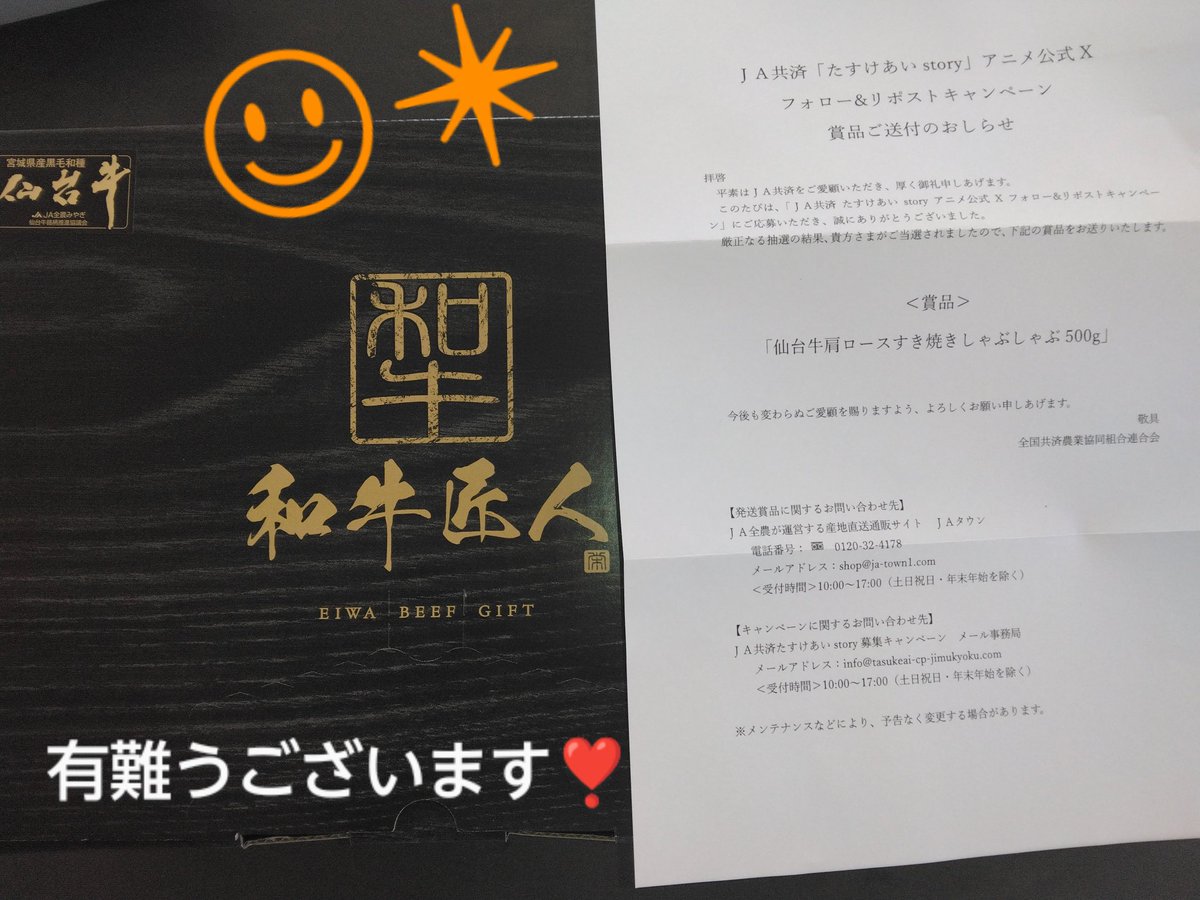 宮城県産黒毛和種
仙台牛
JA全農みやぎ
仙台牛銘柄推進協議会
和牛
和牛匠人
EIWA BEEF GIFT
有難うございます❣️
JA共済「たすけあい story」アニメ公式 X
フォロー&リポストキャンペーン
賞品ご送付のおしらせ
拝啓
平素はJA共済をご愛顧いただき、厚く御礼申しあげます。
このたびは、「JA共済 たすけあい story アニメ公式 X フォロー&リポストキャンペー
ン」にご応募いただき、誠にありがとうございました。
厳正なる抽選の結果、貴方さまがご当選されましたので、下記の賞品をお送りいたします。
＜賞品＞
「仙台牛肩ロースすき焼きしゃぶしゃぶ 500g」
今後も変わらぬご愛顧を賜りますよう、よろしくお願い申しあげます。
敬具
全国共済農業協同組合連合会
【発送賞品に関するお問い合わせ先】
JA全農が運営する産地直送通販サイト　JAタウン
電話番号： 0120-32-4178
メールアドレス：shop@ja-town1.com
＜受付時間＞10:00～17:00（土日祝日・年末年始を除く）
【キャンペーンに関するお問い合わせ先】
JA共済たすけあい story 募集キャンペーン　メール事務局
メールアドレス：info@tasukeai-cp-jimukyoku.com
＜受付時間＞10:00～17:00（土日祝日・年末年始を除く）
※メンテナンスなどにより、予告なく変更する場合があります。